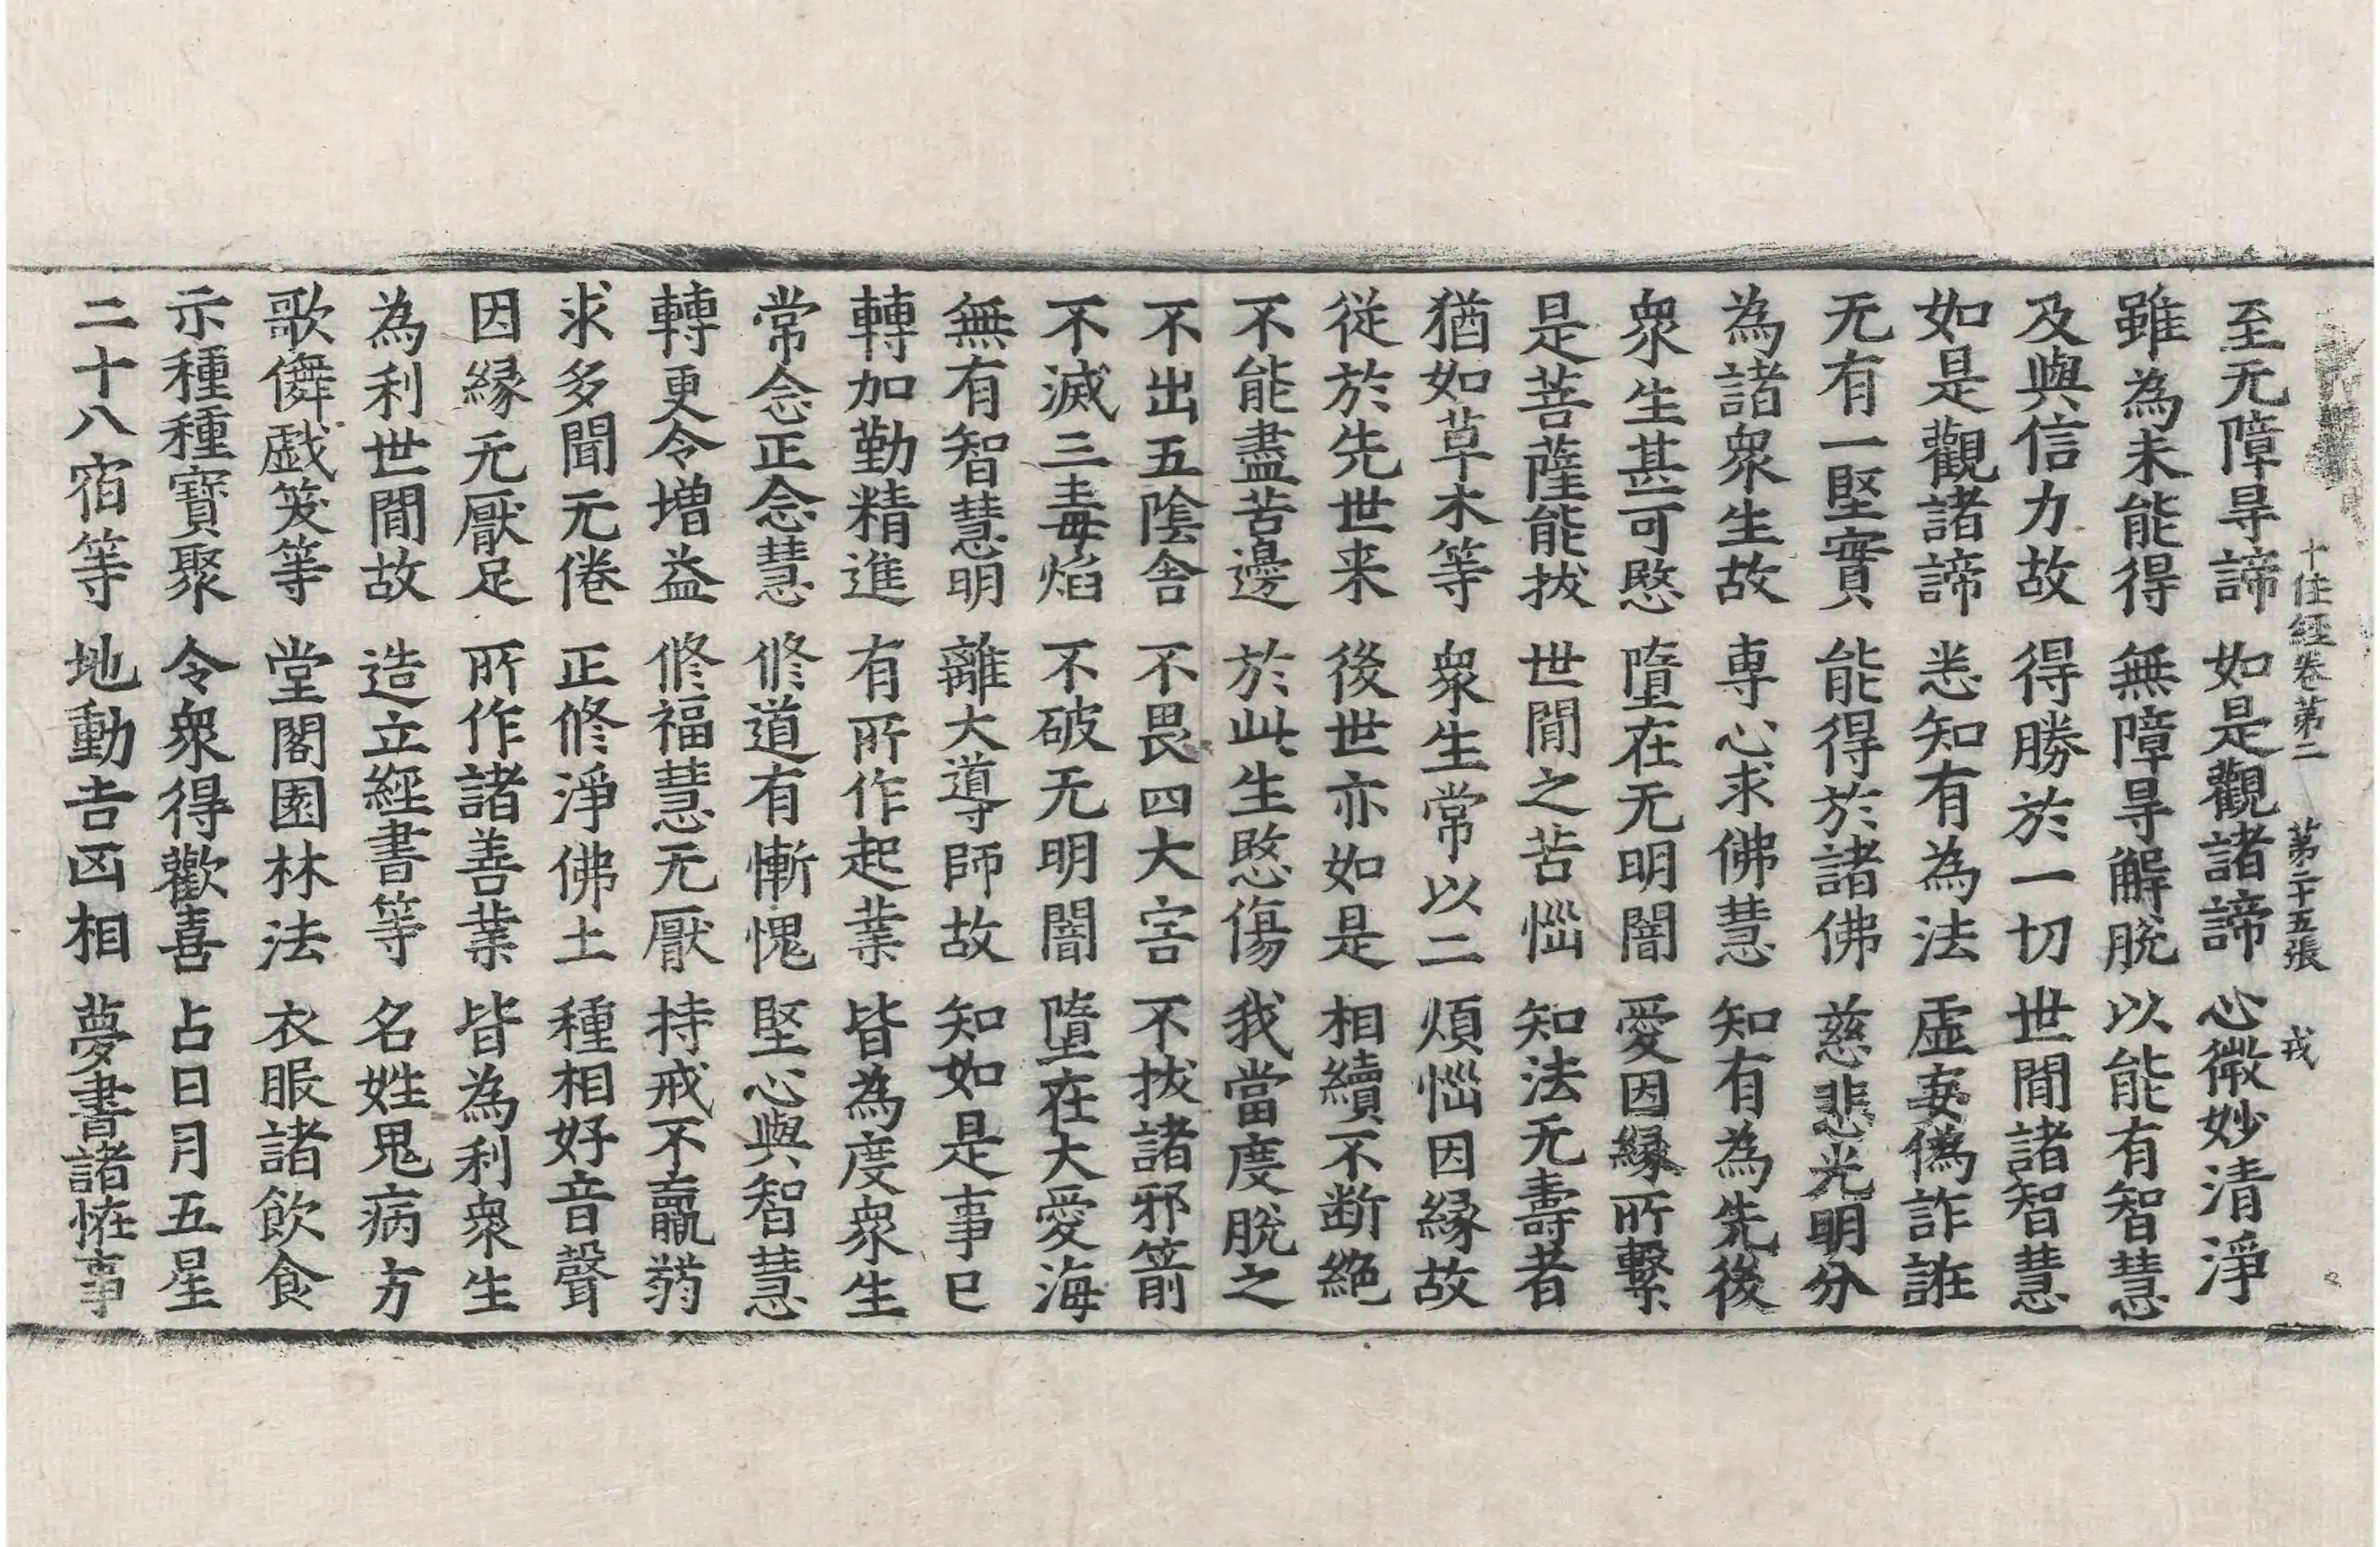 十住經卷第二 第二十五張 戎
至无障㝵諦 如是觀諸諦 心微妙清淨
雖為未能得 無障㝵解脫 以能有智慧
及與信力故 得勝於一切 世閒諸智慧
如是觀諸諦 悉知有為法 虛妄偽詐誑
无有一堅實 能得於諸佛 慈悲光明分
為諸衆生故 專心求佛慧 知有為先後
衆生甚可愍 墮在无明闇 愛因緣所繫
是菩薩能拔 世閒之苦惱 知法无壽者
猶如草木等 衆生常以二 煩惱因緣故
從於先世来 後世亦如是 相續不断絶
不能盡苦邊 於此生愍傷 我當度脫之
不出五陰舍 不畏四大害 不拔諸邪箭
不滅三毒焰 不破无明闇 墮在大愛海
無有智慧明 離大導師故 知如是事已
轉加勤精進 有所作起業 皆為度衆生
常念正念慧 修道有慚愧 堅心與智慧
轉更令增益 修福慧无厭 持戒不羸弱
求多聞无倦 正修淨佛土 種相好音聲
因緣无厭足 所作諸善業 皆為利衆生
為利世閒故 造立經書等 名姓鬼病方
歌儛戱笑等 堂閣園林法 衣服諸飲食
示種種寶聚 令衆得歡喜 占日月五星
二十八宿等 地動吉凶相 夢書諸恠事